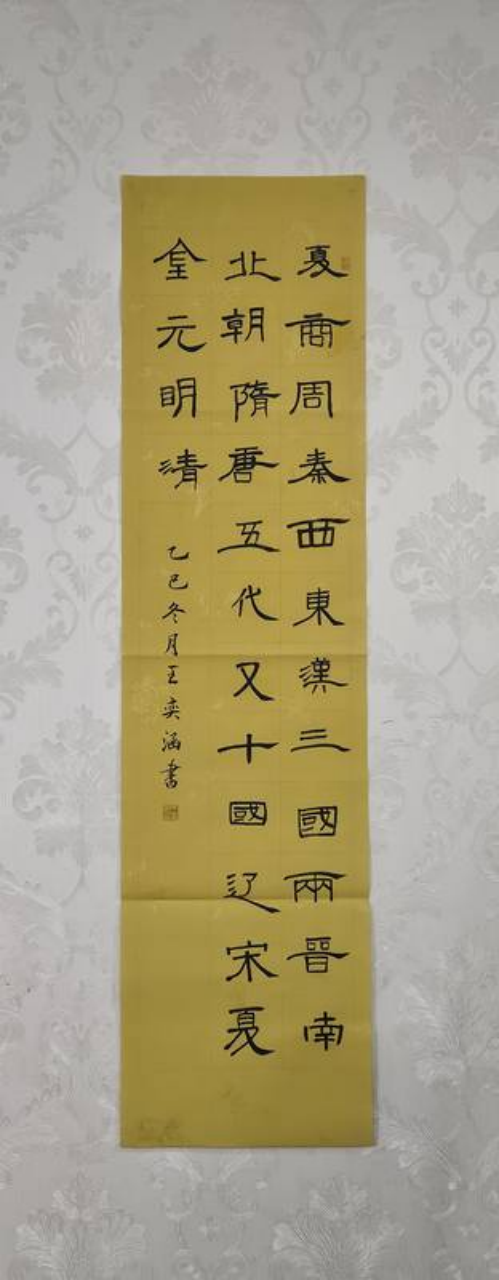 夏商周秦西東漢三國兩晉南
北朝隋唐五代又十國辽宋夏
金元明清
乙巳冬月王奕涵書